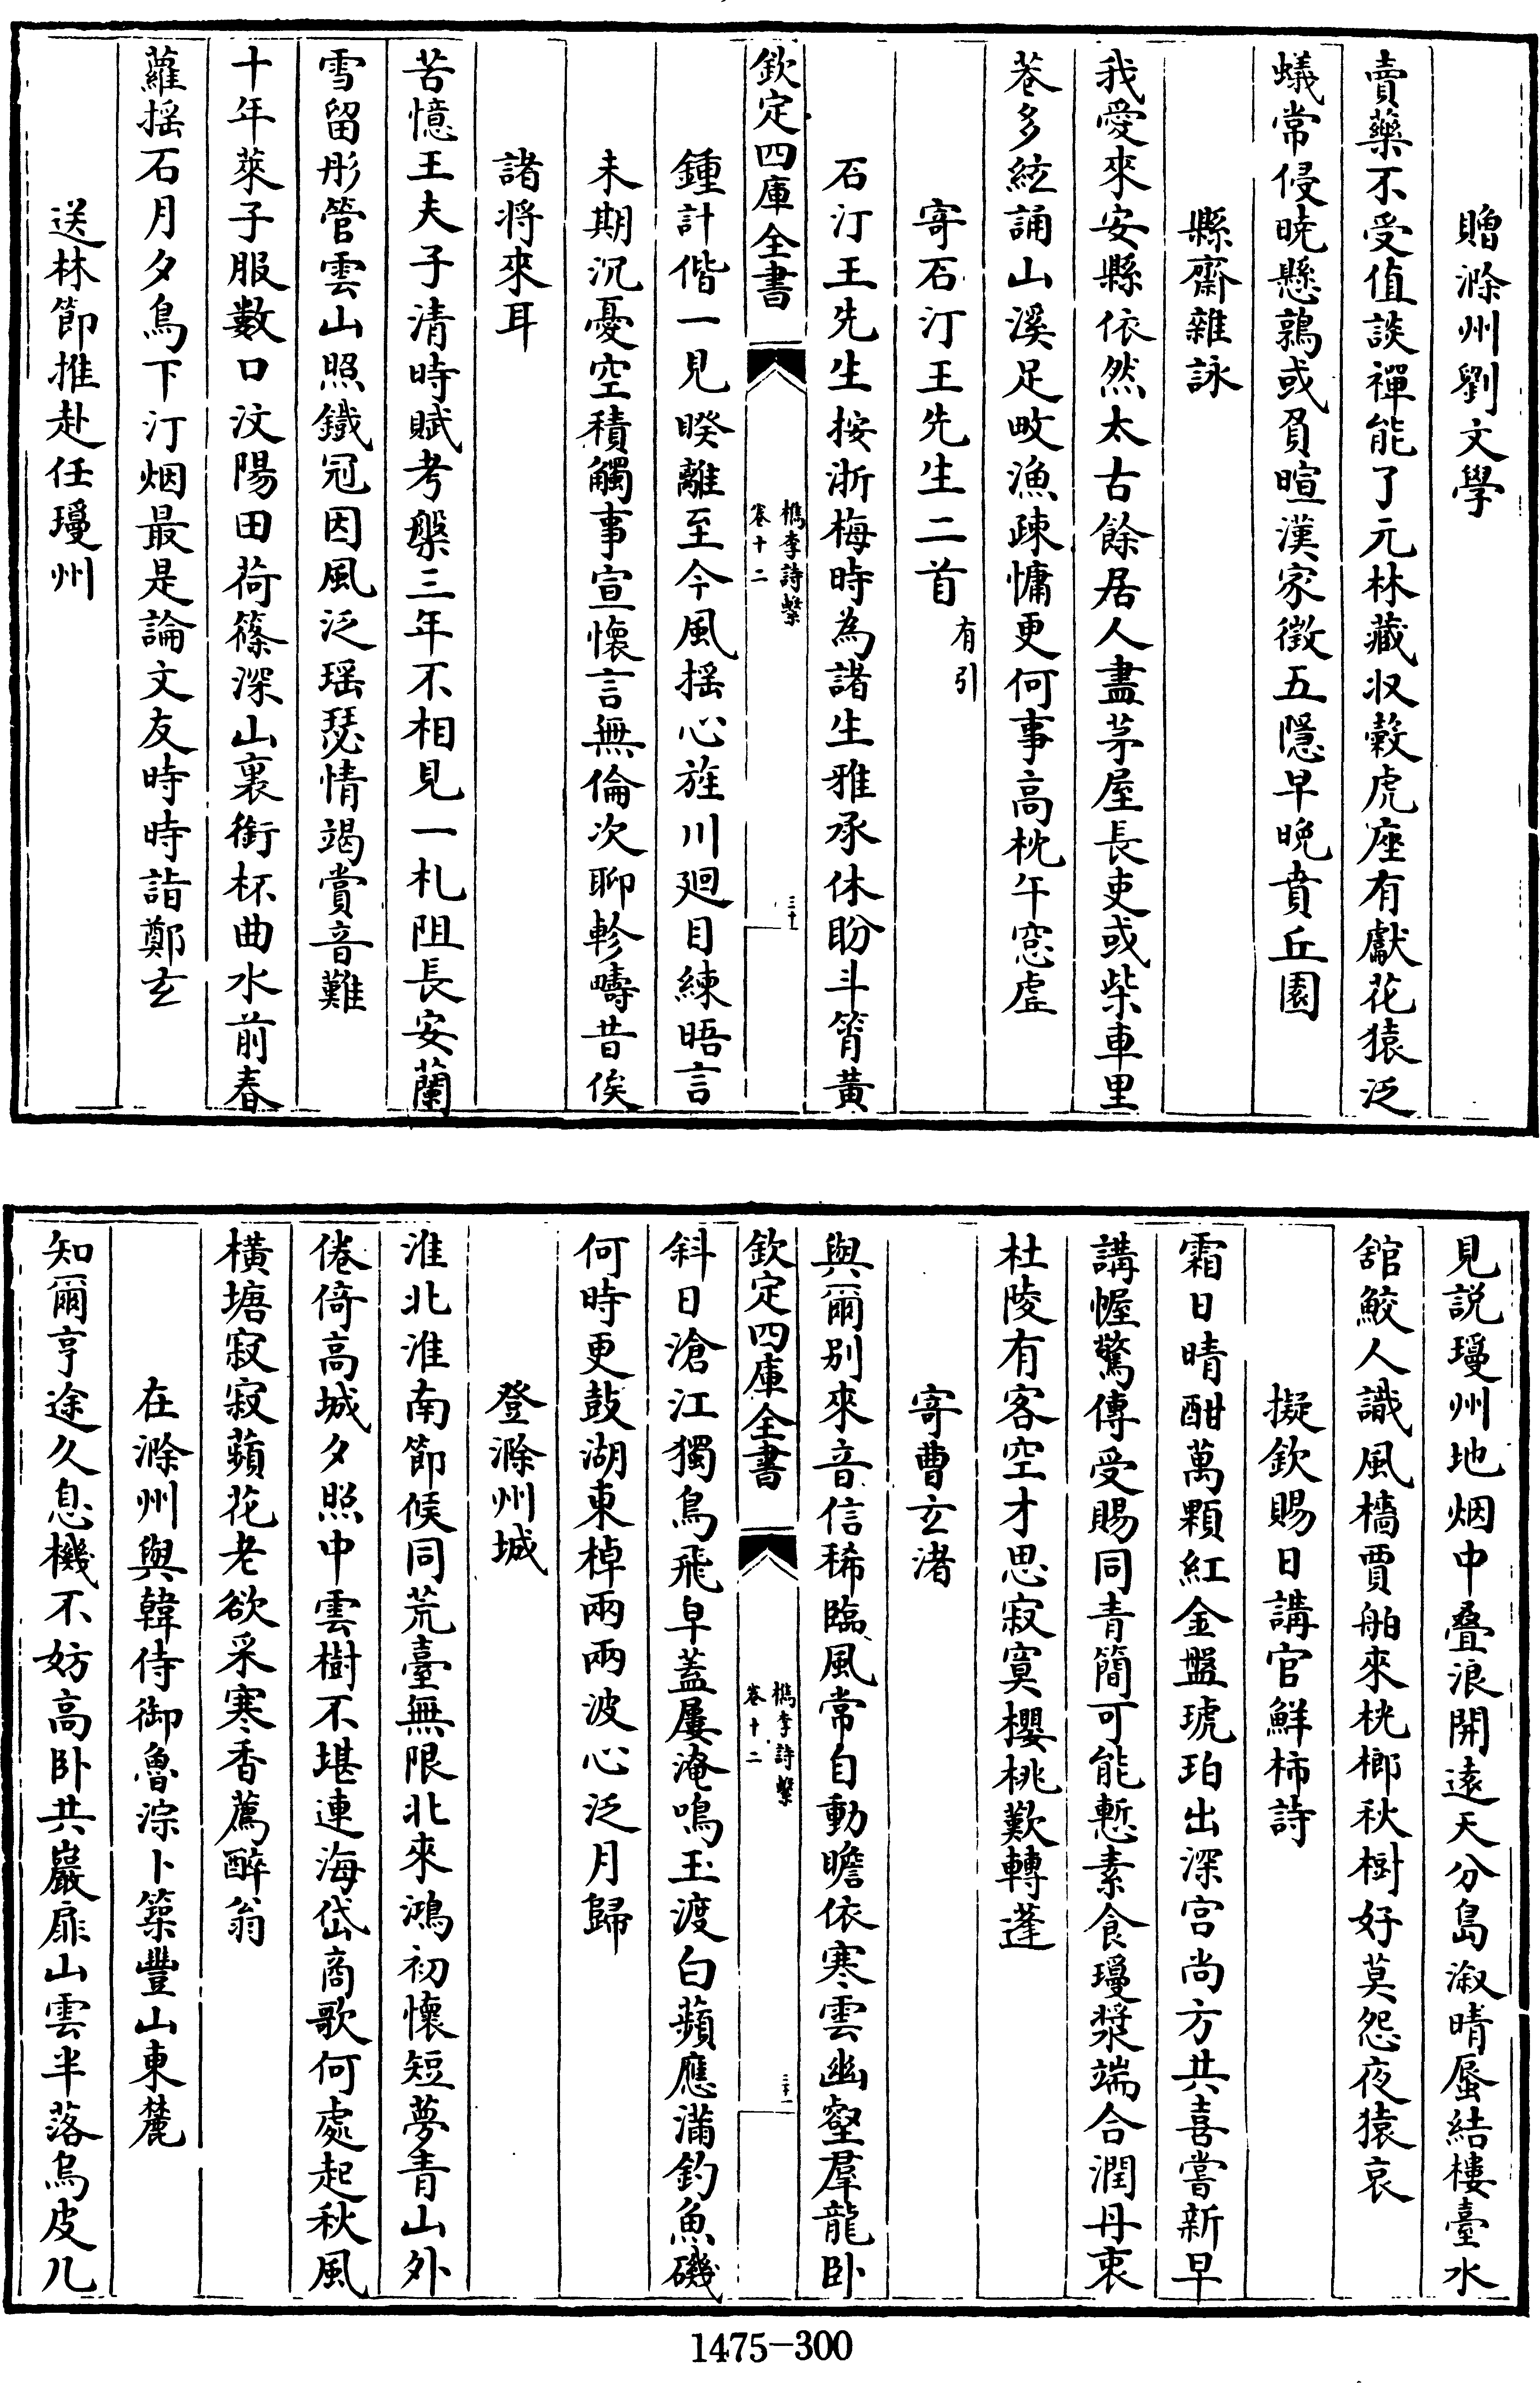 贈滁州劉文學
賣藥不受值談禪能了元林藏収糓虎座有獻花猿泛
蟻常侵曉懸鶉或負暄漢家徵五隱早晩賁丘園
縣齋雜詠
我愛來安縣依然太古餘居人盡茅屋長吏或柴車里
巷多絃誦山溪足畋漁疎慵更何事高枕午窓虛
寄石汀王先生二首有引
石汀王先生按浙梅時為諸生雅承休盼斗筲黄
欽定四庫全書
檇李詩繫
卷十二
三十
鍾計偕一見暌離至今風揺心旌川廻目練晤言
未期沉憂空積觸事宣懷言無倫次聊軫疇昔俟
諸將來耳
苦憶王夫子清時賦考槃三年不相見一札阻長安蘭
雪留彤管雲山照鐵冠因風泛瑶瑟情竭賞音難
十年萊子服數口汶陽田荷篠深山裏銜杯曲水前春
蘿揺石月夕鳥下汀烟最是論文友時時詣鄭玄
送林節推赴任瓊州
見説瓊州地烟中疊浪開遠天分島溆晴蜃結樓臺水
舘鮫人識風檣賈舶來桄榔秋樹好莫怨夜猿哀
擬欽賜日講官鮮柿詩
霜日晴酣萬顆紅金盤琥珀出深宫尚方共喜嘗新早
講幄驚傳受賜同青簡可能慙素食瓊漿端合潤丹衷
杜陵有客空才思寂寞櫻桃歎轉蓬
寄曹玄渚
與爾别來音信稀臨風常自動瞻依寒雲幽壑羣龍卧
欽定四庫全書
檇李詩繫
卷十二
三十一
斜日滄江獨鳥飛皁蓋屢淹鳴玉渡白蘋應滿釣魚磯
何時更鼓湖東棹兩兩波心泛月歸
登滁州城
淮北淮南節候同荒臺無限北來鴻初懷短夢青山外
倦倚高城夕照中雲樹不堪連海岱商歌何處起秋風
橫塘寂寂蘋花老欲采寒香薦醉翁
在滁州與韓侍御魯淙卜築豐山東麓
知爾亨途久息機不妨高卧共巖扉山雲半落烏皮几
1475-300